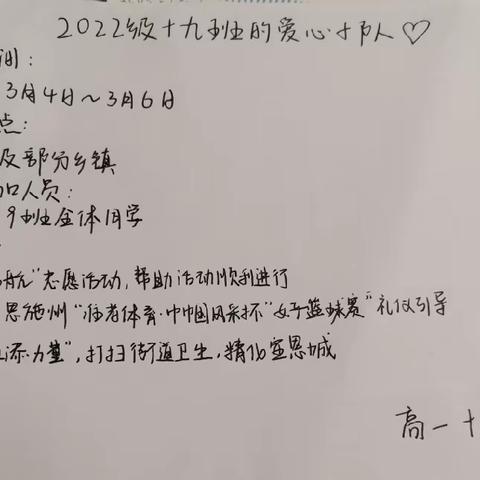 2022级十九班的爱心小队人♡
间:
3月4日~3月6日
点:
及部分乡镇
加人员:
9班全体同学
航"志愿活动,帮助活动顺利进行
恩施州"体育·中国风采杯"女子篮球赛"礼仪引导
添力量",打扫街道卫生,精化宣恩城
高一十